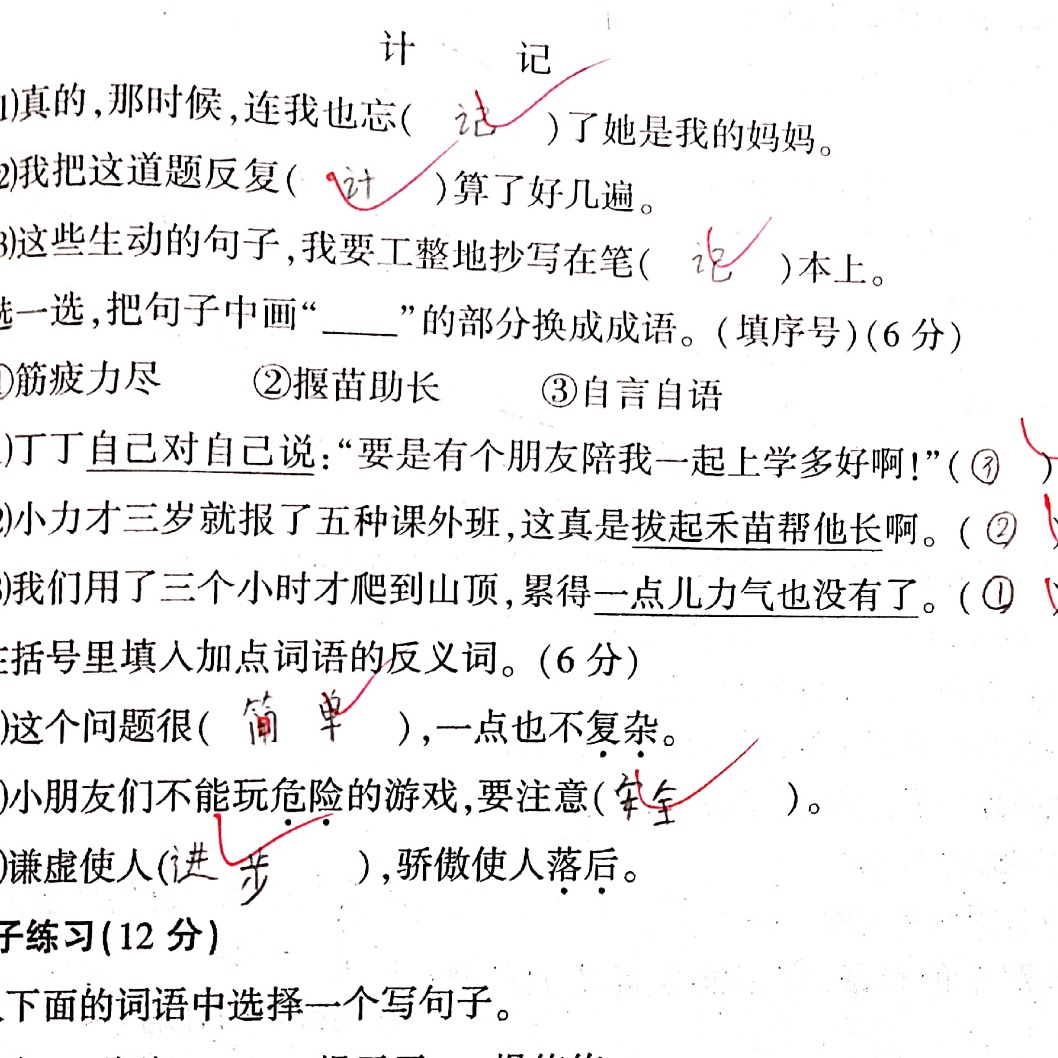 计 记
1)真的,那时候,连我也忘( 记 )了她是我的妈妈。
2)我把这道题反复( 计 )算了好几遍。
3)这些生动的句子,我要工整地抄写在笔( 记 )本上。
选一选,把句子中画“____”的部分换成成语。(填序号)(6分)
①筋疲力尽 ②揠苗助长 ③自言自语
)丁丁自己对自己说:“要是有个朋友陪我一起上学多好啊!”( ③ )
2)小力才三岁就报了五种课外班,这真是拔起禾苗帮他长啊。( ② )
3)我们用了三个小时才爬到山顶,累得一点儿力气也没有了。( ① )
在括号里填入加点词语的反义词。(6分)
)这个问题很( 简单 ),一点也不复杂。
)小朋友们不能玩危险的游戏,要注意(安全 )。
)谦虚使人(进步 ),骄傲使人落后。
子练习(12分)
下面的词语中选择一个写句子。